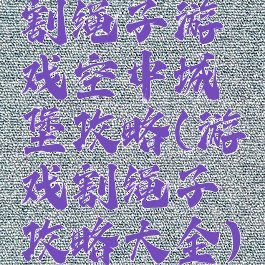 割绳子游
戏空中城
堡攻略(游
戏割绳子
攻略大全)